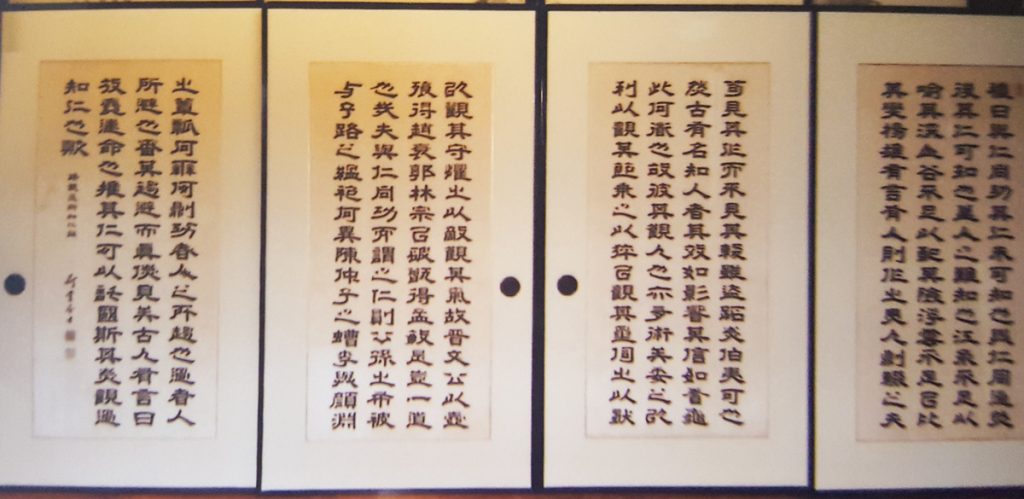 禮曰與仁同功其仁未可知也與仁同過然
後其仁可知也蓋人之難知也江泉不足以
喻其深山谷不足以配其險浮雲不足以比
其變揚雄有言有人則作之夫人則輟之夫
苟見其作而不見其輟雖盜跖為伯夷可也
然古有名知人者其效如影響其信如蓍龜
此何道也故彼其觀人也亦多術矣委之以
利以觀其節乘之以猝以觀其量伺之以獸
以觀其守懼之以敵觀其氣故晉文公以壺
飧得趙衰郭林宗以破甑得孟敏是豈一道
也哉夫與仁同功而謂之仁則公孫之布被
与子路之縕袍何異陳仲子之螬李與顏淵
之簞瓢何辨何則功者人之所趨也過者人
所避也審其趨避而真偽見矣古人有言曰
鉏麑違命也推其仁可以託國斯其為觀過
知仁也歟